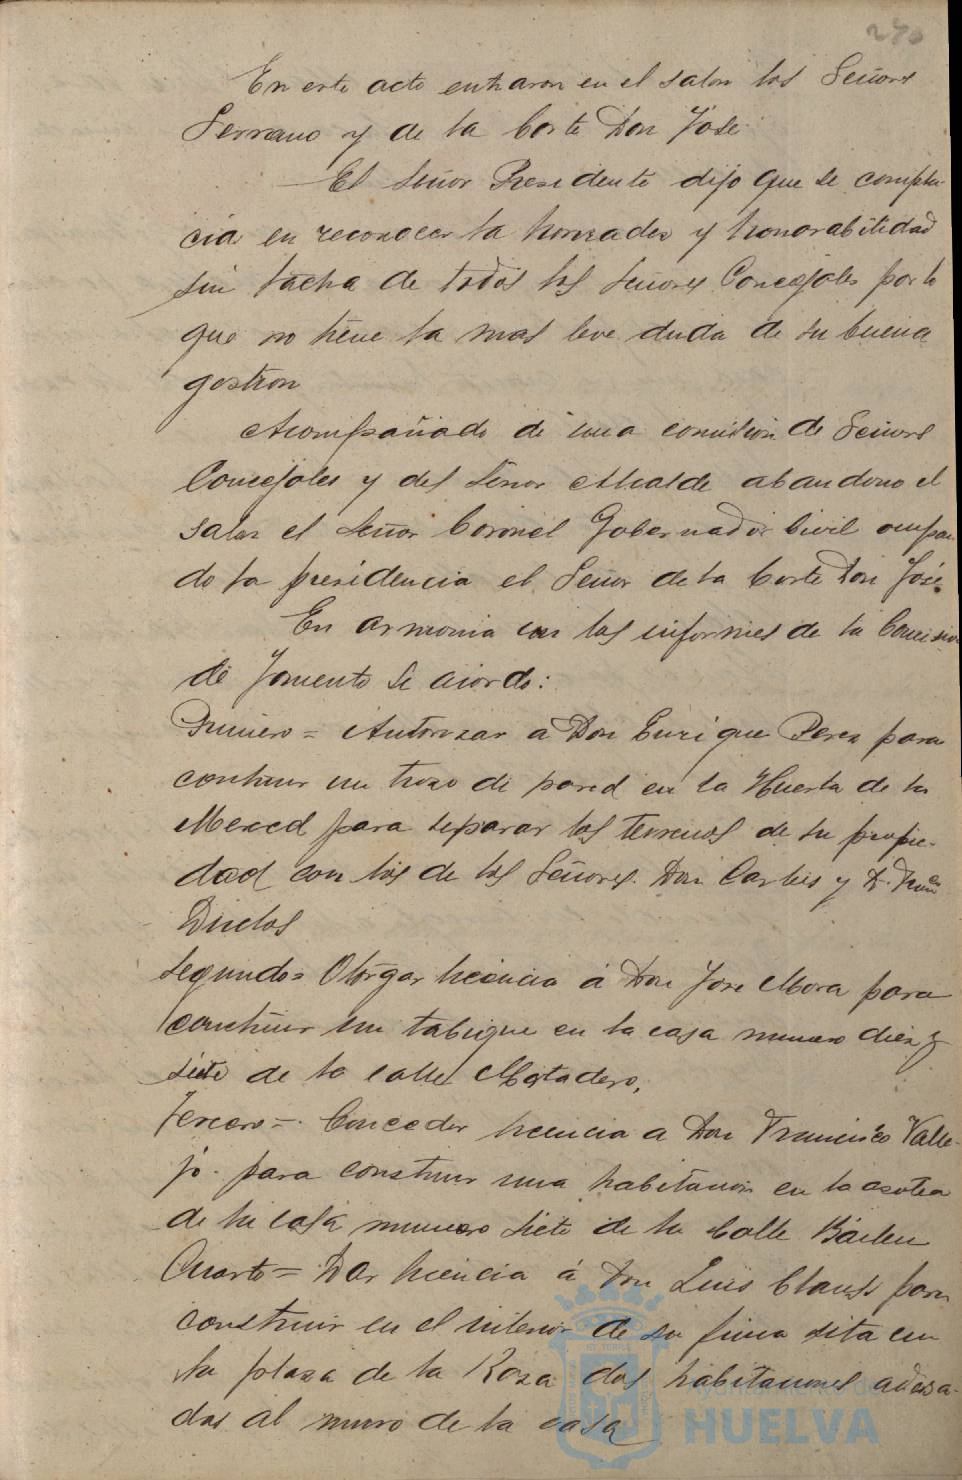 240
En este acto entraron en el salon los Señores
Serrano y de la Corte Don José.
El Señor Presidente dijo que se compla-
cia en reconocer la honradez y honorabilidad
sin tacha de todos los Señores Concejales por lo
que no tiene la mas leve duda de su buena
gestion
Acompañado de una comision de Señores
Concejales y del Señor Alcalde abandono el
salon el Señor Coronel Gobernador Civil ocupan
do la presidencia el Señor de la Corte Don José.
En armonia con los informes de la Comision
de Fomento se acordo:
Primero = Autorizar á Don Enrique Perez para
construir un trozo de pared en la Huerta de la
Merced para separar los terrenos de su propie-
dad con los de los Señores Don Carlos y D.
Segundo = Otorgar licencia á Don Jose Mora para
construir un tabique en la casa numero diez y
siete de la calle Matadero,
Tercero = Conceder licencia a Don Francisco Valle-
jo para construir una habitacion en la azotea
de su casa numero siete de la Calle Bailen
Cuarto = Dar licencia á Don Luis para
construir en el interior de su finca sita en
la plaza de la dos habitaciones adosa-
das al muro de la casa
Ayuntamiento de
HUELVA